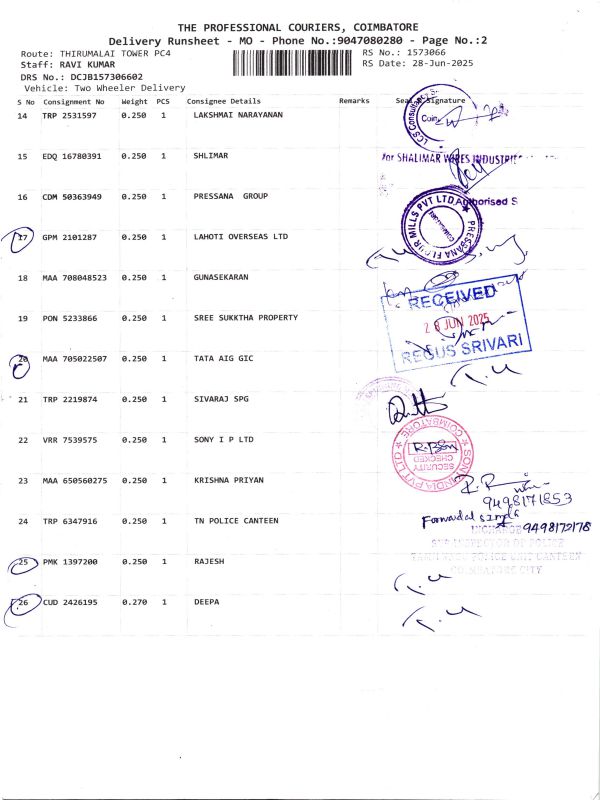 THE PROFESSIONAL COURIERS, COIMBATORE
Delivery Runsheet - MO - Phone No.:9047080280 - Page No.:2
Route: THIRUMALAI TOWER PC4
RS No.: 1573066
Staff: RAVI KUMAR
RS Date: 28-Jun-2025
DRS No.: DCJB157306602
Vehicle: Two Wheeler Delivery
S No Consignment No Weight PCS Consignee Details Remarks Seal & Signature
14 TRP 2531597 0.250 1 LAKSHMAI NARAYANAN
LCS Consultancy S
Coim
15 EDQ 16780391 0.250 1 SHLIMAR
For SHALIMAR WIRES INDUSTRIE
16 CDM 50363949 0.250 1 PRESSANA GROUP
Authorised S
PRESSANA FLOUR MILLS PVT LTD
17 GPM 2101287 0.250 1 LAHOTI OVERSEAS LTD
18 MAA 708048523 0.250 1 GUNASEKARAN
RECEIVED
19 PON 5233866 0.250 1 SREE SUKKTHA PROPERTY
28 JUN 2025
REGUS SRIVARI
20 MAA 705022507 0.250 1 TATA AIG GIC
21 TRP 2219874 0.250 1 SIVARAJ SPG
22 VRR 7539575 0.250 1 SONY I P LTD
COIMBATORE
SECURITY
CHECKED
SONY INDIA PVT LTD
23 MAA 650560275 0.250 1 KRISHNA PRIYAN
9498171853
24 TRP 6347916 0.250 1 TN POLICE CANTEEN
9498172178
INCHARGE
SUB INSPECTOR OF POLICE
POLICE UNIT CANTEEN
COIMBATORE CITY
25 PMK 1397200 0.250 1 RAJESH
26 CUD 2426195 0.270 1 DEEPA